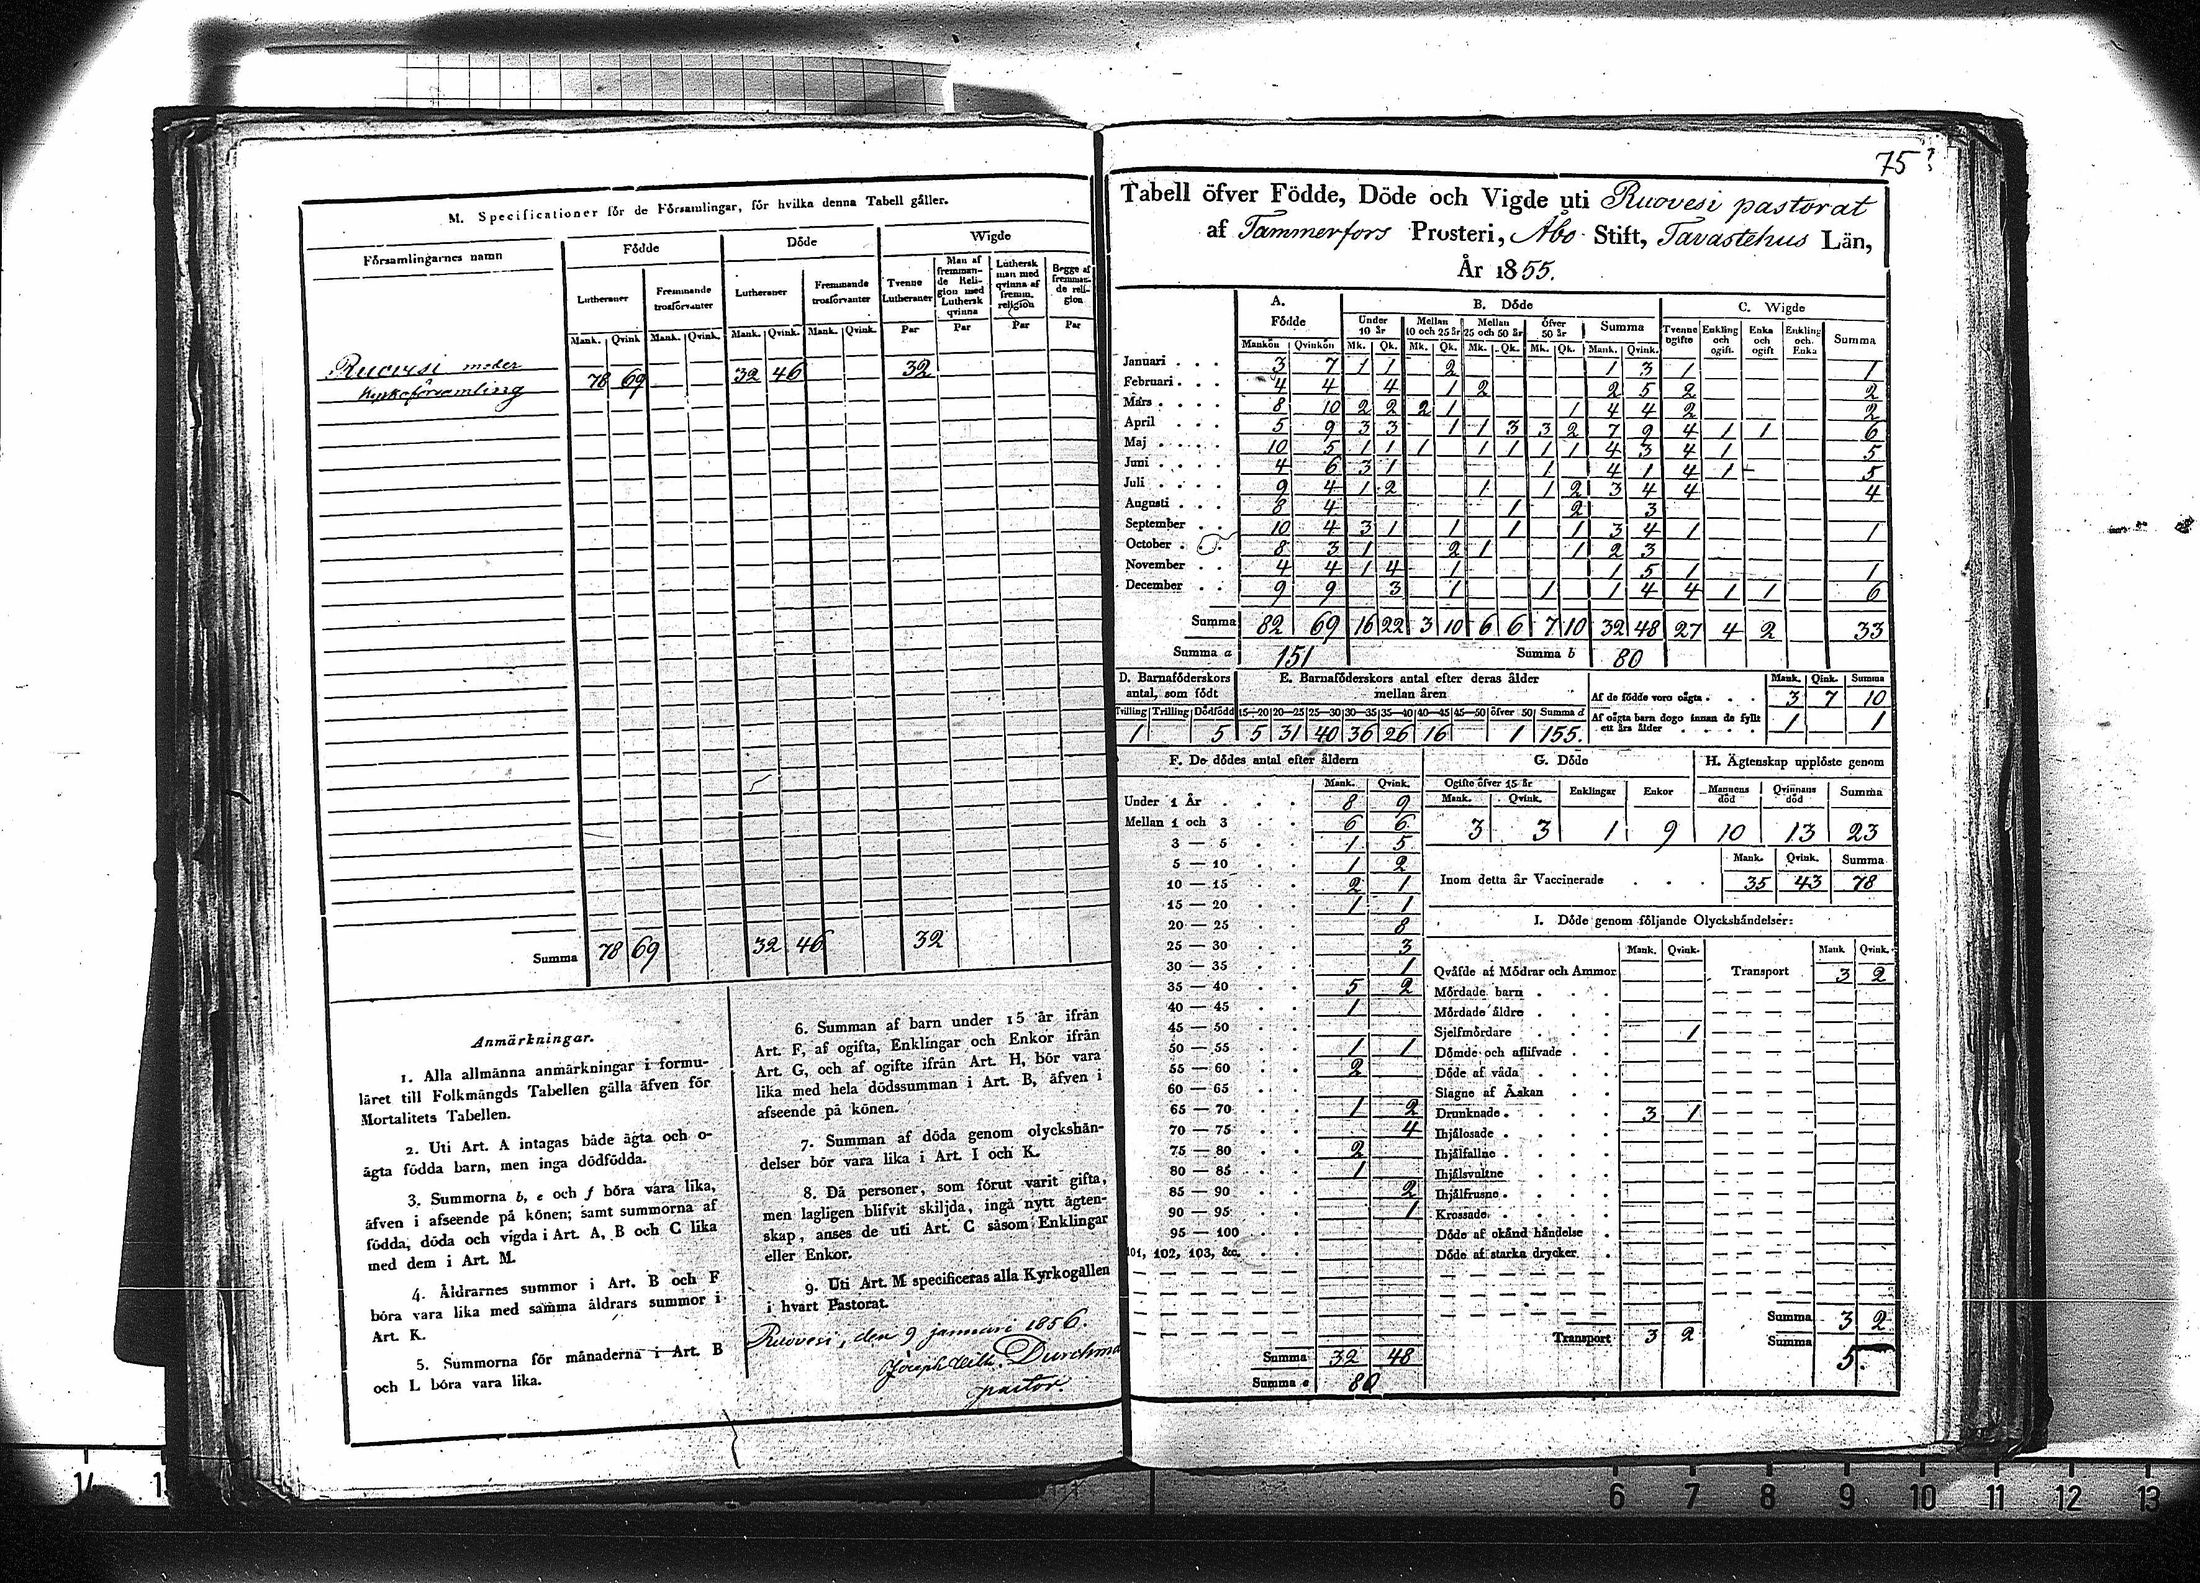 M. Specificationer för de Församlingar, för hvilka denna Tabell gäller.
Församlingarnes namn | Födde | Döde | Wigde
Lutheraner | Fremmande trosförvanter | Lutheraner | Fremmande trosförvanter | Tvenne Lutheraner | Man af fremmande Religion med Luthersk qvinna | Luthersk man med qvinna af fremm. religion | Begge af fremmande religion
Mank. | Qvink | Mank. | Qvink. | Mank. | Qvink. | Mank. | Qvink. | Par | Par | Par | Par
Ruovesi moder
kyrkoförsamling | 78 | 69 | 32 | 46 | 32
Summa | 78 | 69 | 32 | 46 | 32
Anmärkningar.
1. Alla allmänna anmärkningar i formu-
läret till Folkmängds Tabellen gälla äfven för
Mortalitets Tabellen.
2. Uti Art. A intagas både ägta och o-
ägta födda barn, men inga dödfödda.
3. Summorna b, e och f böra vara lika,
äfven i afseende på könen; samt summorna af
födda, döda och vigda i Art. A, B och C lika
med dem i Art. M.
4. Åldrarnes summor i Art. B och F
böra vara lika med samma åldrars summor i
Art. K.
5. Summorna för månaderna i Art. B
och L böra vara lika.
6. Summan af barn under 15 år ifrån
Art. F, af ogifta, Enklingar och Enkor ifrån
Art. G, och af ogifte ifrån Art. H, bör vara
lika med hela dödssumman i Art. B, äfven i
afseende på könen.
7. Summan af döda genom olyckshän-
delser bör vara lika i Art. I och K.
8. Då personer, som förut varit gifta,
men lagligen blifvit skiljda, ingå nytt ägten-
skap, anses de uti Art. C såsom Enklingar
eller Enkor.
9. Uti Art. M specificeras alla Kyrkogällen
i hvart Pastorat.
Ruovesi, den 9 januari 1856.
Joseph Wilh. Durchman
pastor.
75
Tabell öfver Födde, Döde och Vigde uti Ruovesi pastorat
af Tammerfors Prosteri, Åbo Stift, Tavastehus Län,
År 1855.
A. Födde | B. Döde | C. Wigde
Under 10 år | Mellan 10 och 25 år | Mellan 25 och 50 år | Öfver 50 år | Summa | Tvenne ogifte | Enkling och ogift. | Enka och ogift | Enkling och Enka | Summa
Mankön | Qvinkön | Mk. | Qk. | Mk. | Qk. | Mk. | Qk. | Mk. | Qk. | Mank. | Qvink.
Januari | 3 | 7 | 1 | 1 | 2 | 1 | 3 | 1 | 1
Februari | 4 | 4 | 4 | 1 | 2 | 2 | 5 | 2 | 2
Mars | 8 | 10 | 2 | 2 | 2 | 1 | 1 | 4 | 4 | 2 | 2
April | 5 | 9 | 3 | 3 | 1 | 1 | 3 | 3 | 2 | 7 | 9 | 4 | 1 | 1 | 6
Maj | 10 | 5 | 1 | 1 | 1 | 1 | 1 | 1 | 1 | 4 | 3 | 4 | 1 | 5
Juni | 4 | 6 | 3 | 1 | 1 | 4 | 1 | 4 | 1 | 5
Juli | 9 | 4 | 1 | 2 | 1 | 1 | 2 | 3 | 4 | 4 | 4
Augusti | 8 | 4 | 1 | 2 | 3
September | 10 | 4 | 3 | 1 | 1 | 1 | 1 | 3 | 4 | 1 | 1
October | 8 | 3 | 1 | 2 | 1 | 1 | 2 | 3
November | 4 | 4 | 1 | 4 | 1 | 1 | 5 | 1 | 1
December | 9 | 9 | 3 | 1 | 1 | 1 | 4 | 4 | 1 | 1 | 6
Summa | 82 | 69 | 16 | 22 | 3 | 10 | 6 | 6 | 7 | 10 | 32 | 48 | 27 | 4 | 2 | 33
Summa a | 151 | Summa b | 80
D. Barnaföderskors antal, som födt
Tvilling | Trilling | Dödfödd
1 | 5
E. Barnaföderskors antal efter deras ålder mellan åren
15—20 | 20—25 | 25—30 | 30—35 | 35—40 | 40—45 | 45—50 | öfver 50 | Summa d
5 | 31 | 40 | 36 | 26 | 16 | 1 | 155.
Mank. | Qink. | Summa
Af de födde voro oägta | 3 | 7 | 10
Af oägta barn dogo innan de fyllt ett års ålder | 1 | 1
F. De dödes antal efter åldern
Mank. | Qvink.
Under 1 År | 8 | 9
Mellan 1 och 3 | 6 | 6
3 — 5 | 1 | 5
5 — 10 | 1 | 2
10 — 15 | 2 | 1
15 — 20 | 1 | 1
20 — 25 | 8
25 — 30 | 3
30 — 35 | 1
35 — 40 | 5 | 2
40 — 45 | 1
45 — 50
50 — 55 | 1 | 1
55 — 60 | 2
60 — 65
65 — 70 | 1 | 2
70 — 75 | 4
75 — 80 | 2
80 — 85 | 1
85 — 90 | 2
90 — 95 | 1
95 — 100
101, 102, 103, &c.
Summa | 32 | 48
Summa e | 80
G. Döde
Ogifte öfver 15 år | Enklingar | Enkor
Mank. | Qvink.
3 | 3 | 1 | 9
H. Ägtenskap upplöste genom
Mannens död | Qvinnans död | Summa
10 | 13 | 23
Mank. | Qvink. | Summa
Inom detta år Vaccinerade | 35 | 43 | 78
I. Döde genom följande Olyckshändelser:
Mank. | Qvink. | Mank | Qvink.
Qväfde af Mödrar och Ammor | Transport | 3 | 2
Mördade barn
Mördade äldre
Sjelfmördare | 1
Dömde och aflifvade
Döde af våda
Slagne af Åskan
Drunknade | 3 | 1
Ihjälosade
Ihjälfallne
Ihjälsvultne
Ihjälfrusne
Krossade
Döde af okänd händelse
Döde af starka drycker
Summa | 3 | 2
Transport | 3 | 2
Summa | 5.
14
13
6 7 8 9 10 11 12 13